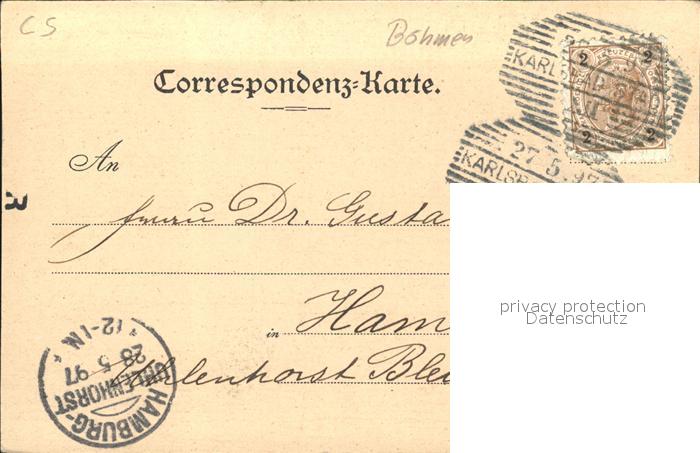 CS
Böhmen
Correspondenz-Karte.
KREUZER
2 2
2 2
KARLSBAD
27 5.97
KARLSB
An
Herrn Dr. Gusta
Ham
in
Uhlenhorst Ble
HAMBURG-UHLENHORST
28.5.97
*12-1N.*
privacy protection
Datenschutz